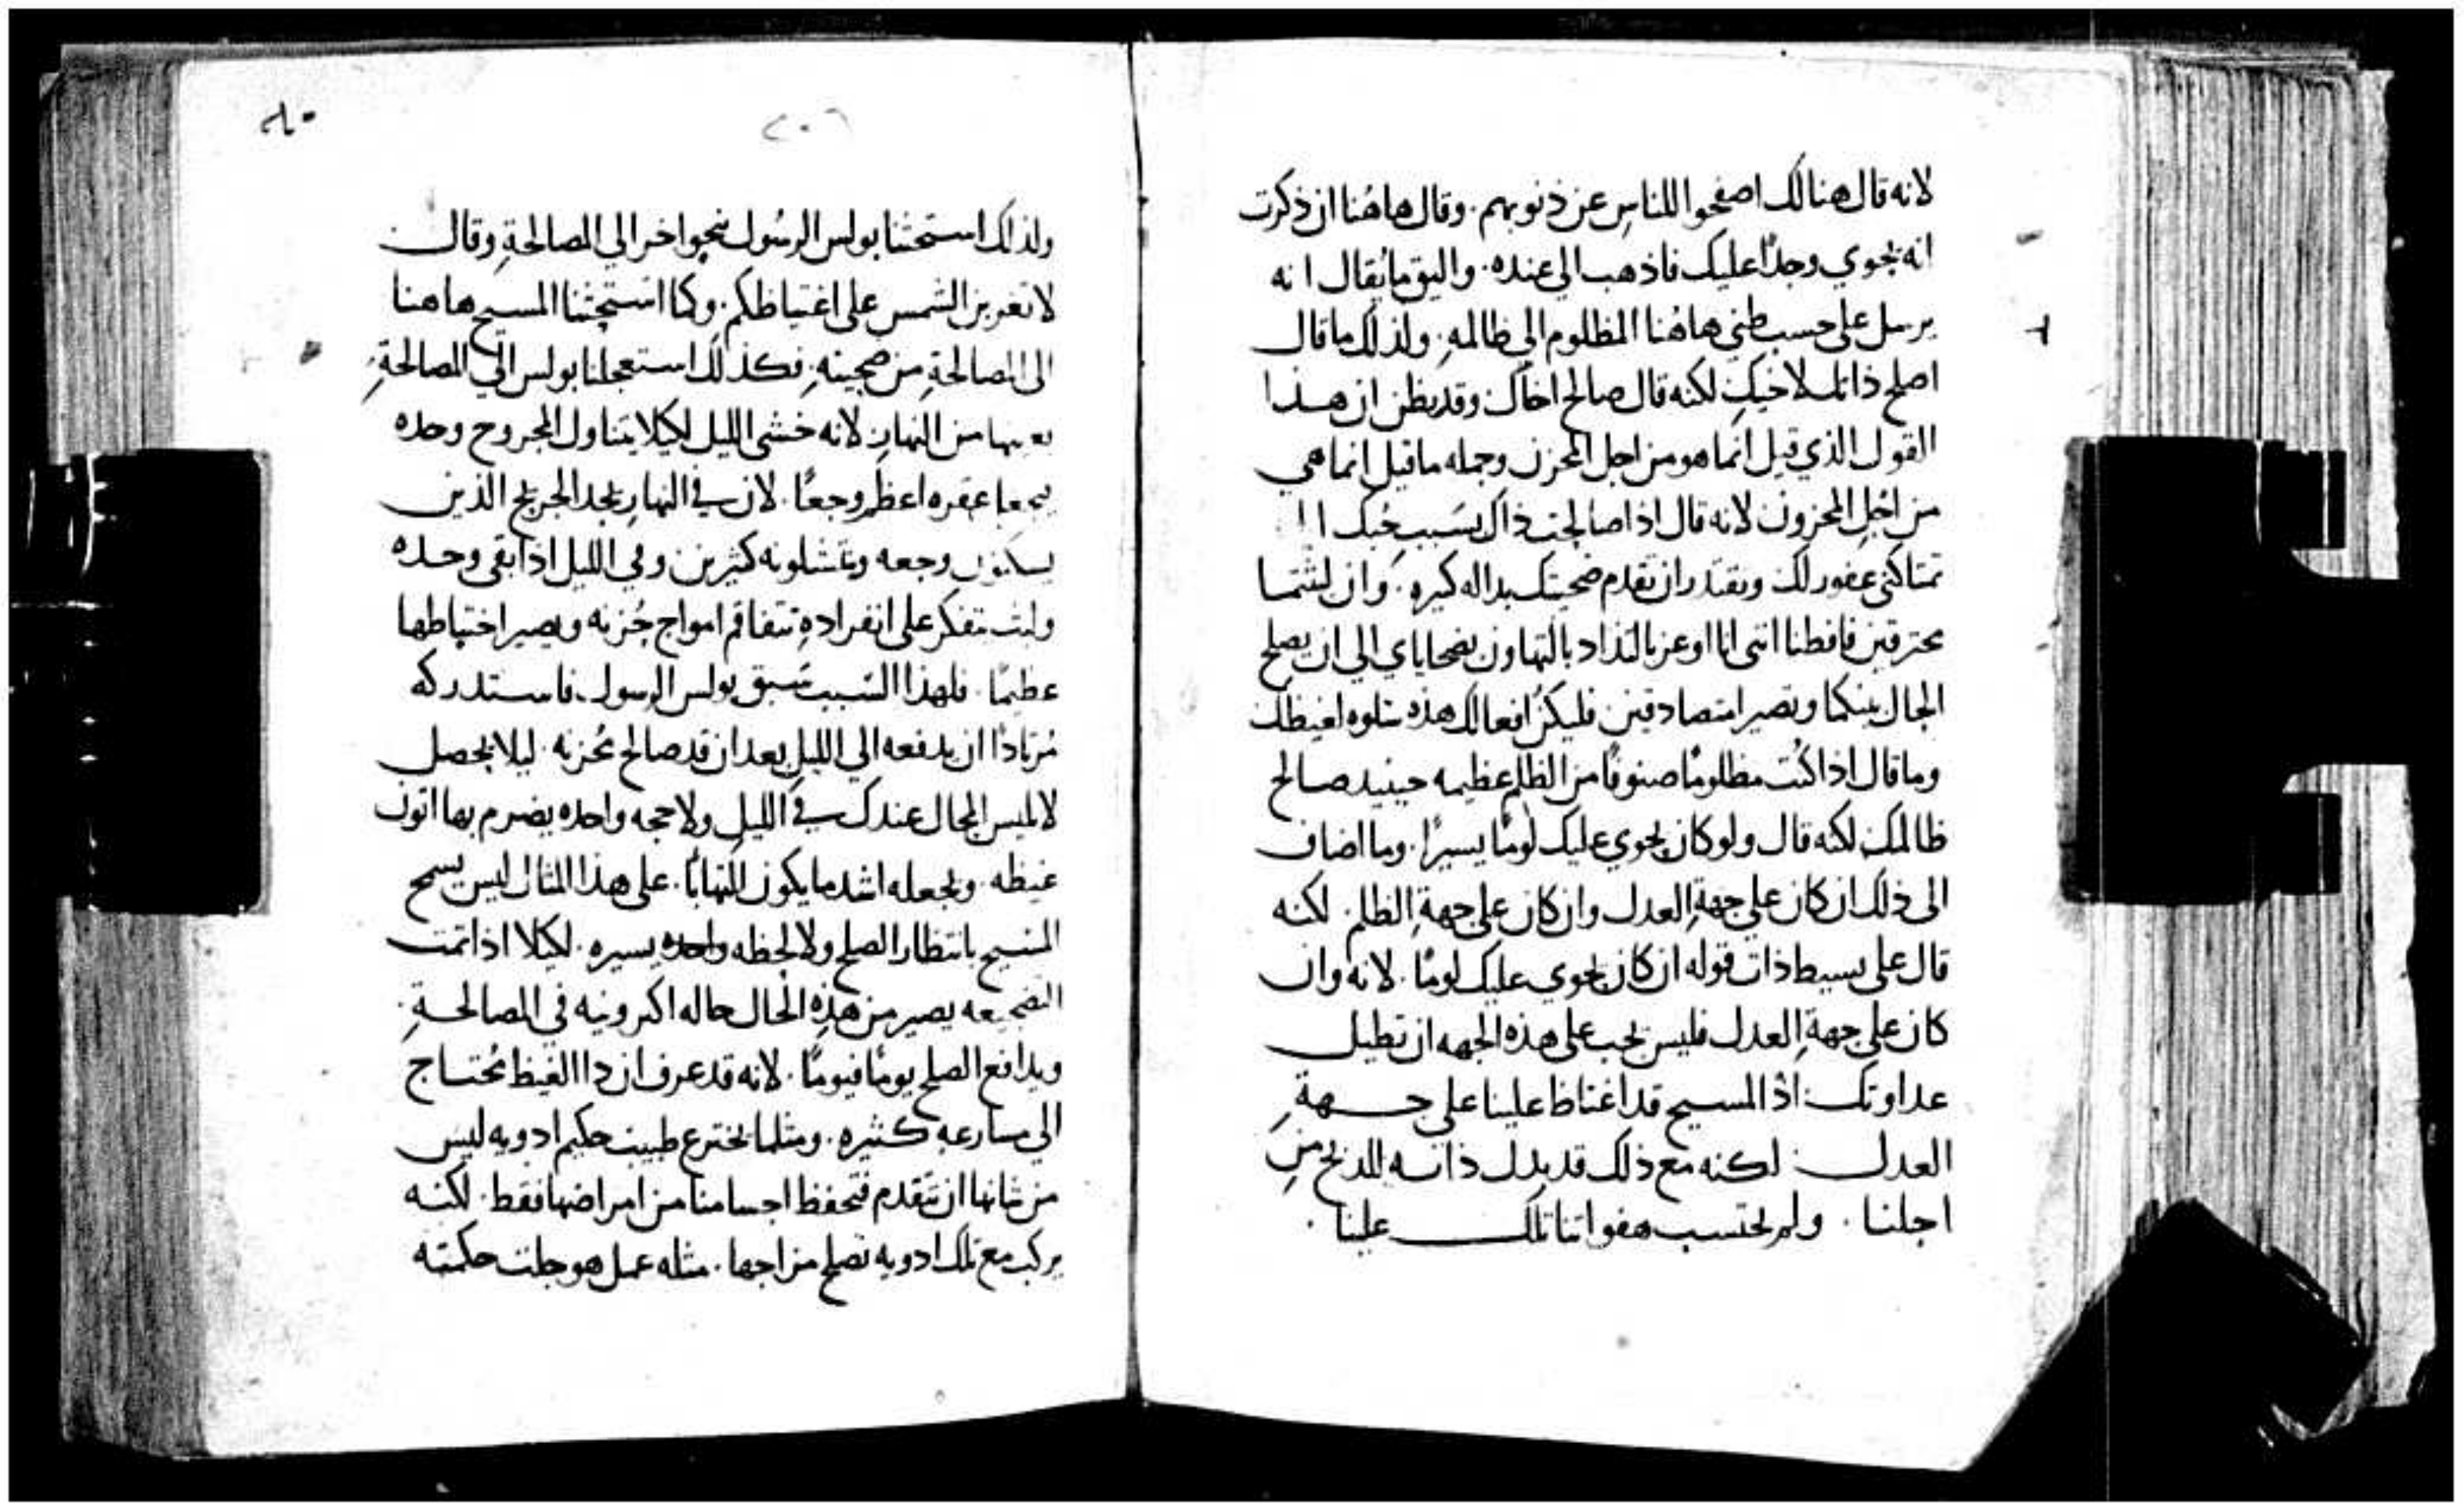 لانه قال هنالك اصفحوا للناس عن ذنوبهم. وقال هاهُنا ان ذكرت
انه يحوي وجدًا عليك فاذهب الى عنده. واليق ما يُقال انه
يرسل على حسب ظني هاهُنا المظلوم الي ظالمهِ. ولذلك ما قال
اصلح ذاتك لاخيك لكنه قال صالح اخاك وقد يظن ان هذا
القول الذي قيل انما هو من اجل المحزن وجمله ما قيل انما هي
من اجلِ المحزون لانه قال اذا صالحت ذاك بسَبب حُبك ا ا
تمتاكني غفور لك وتقتدر ان تقدم ضحيتك بداله كبيره. وان لبثتما
محترقين فافطنا انني انا اوعز بالتذاد بالتهاون بضحاياي الي ان يصلح
الحال بينكما وتصيرا متصادقين فليكن افعالك هذه سلوه لغيظك
وما قال اذا كنت مظلومًا صنوفًا من الظلم عظيمه حينيد صالح
ظالمك لكنه قال ولو كان يحوي عليك لومًا يسيرًا. وما اضاف
الى ذلك ان كان على جهةِ العدل وان كان على جهةِ الظلم. لكنه
قال على بسيط ذات قوله ان كان يحوي عليك لومًا. لانه وان
كان على جهةِ العدل فليس يجب على هذه الجهه ان تطيل
عداوتك: اذ المسيح قد اغتاظ علينا على جهةِ
العدل: لكنه مع ذلك قد بدل ذاته للذبح من
اجلنا. ولم يحتسب هفواتنا تلك علينا.
٢٠٦
ولذلك استحثنا بولس الرسُول نحو اخر الي المصالحةِ وقال
لا تغربن الشمس على اغتياظكم. وكما استحثنا المسيح هاهنا
الى المصالحةِ من ضحيتهِ. فكذلك استعجلنا بولس الي المصالحةِ
بعينها من النهار لانه خشى الليل لكيلا يتناول المجروح وحده
فيجعل عقره اعظم وجعًا. لان في النهارِ يجد الجريح الذين
يسكنون وجعه وينتشلونه كثيرين وفي الليل اذا بقى وحده
ولبث يتفكر على انفرادهِ تتفاقم امواج حُزنه ويصير اختباطها
عظيمًا. فلهذا السَبب سَبق بولس الرسول. فاستدركه
مُرتادًا ان يدفعه الي الليل بعد ان قد صالح مُحزنه. ليلا يحصل
لابليس المحال عندك في الليل ولا حجه واحده يضرم بها اتون
غيظه. ويجعله اشد ما يكون التهابًا. على هذا المثال ليس يسمح
المسيح بانتظار الصلح ولا لحظه واحده يسيره. لكيلا اذا تمت
الضحيعه يصير من هذهِ الحال حاله اكبر ونيه في المصالحةِ.
ويدافع الصلح يومًا فيومًا. لانه قد عرف ان دا الغيظ مُحتاج
الي مسارعه كثيره. ومثلما يخترع طبيب حكيم ادويه ليس
من شانها ان تتقدم فتحفظ اجسامنا من امراضها فقط. لكنه
يركب مع تلك ادويه تصلح مزاجها. مثله عمل هو جلت حكمته